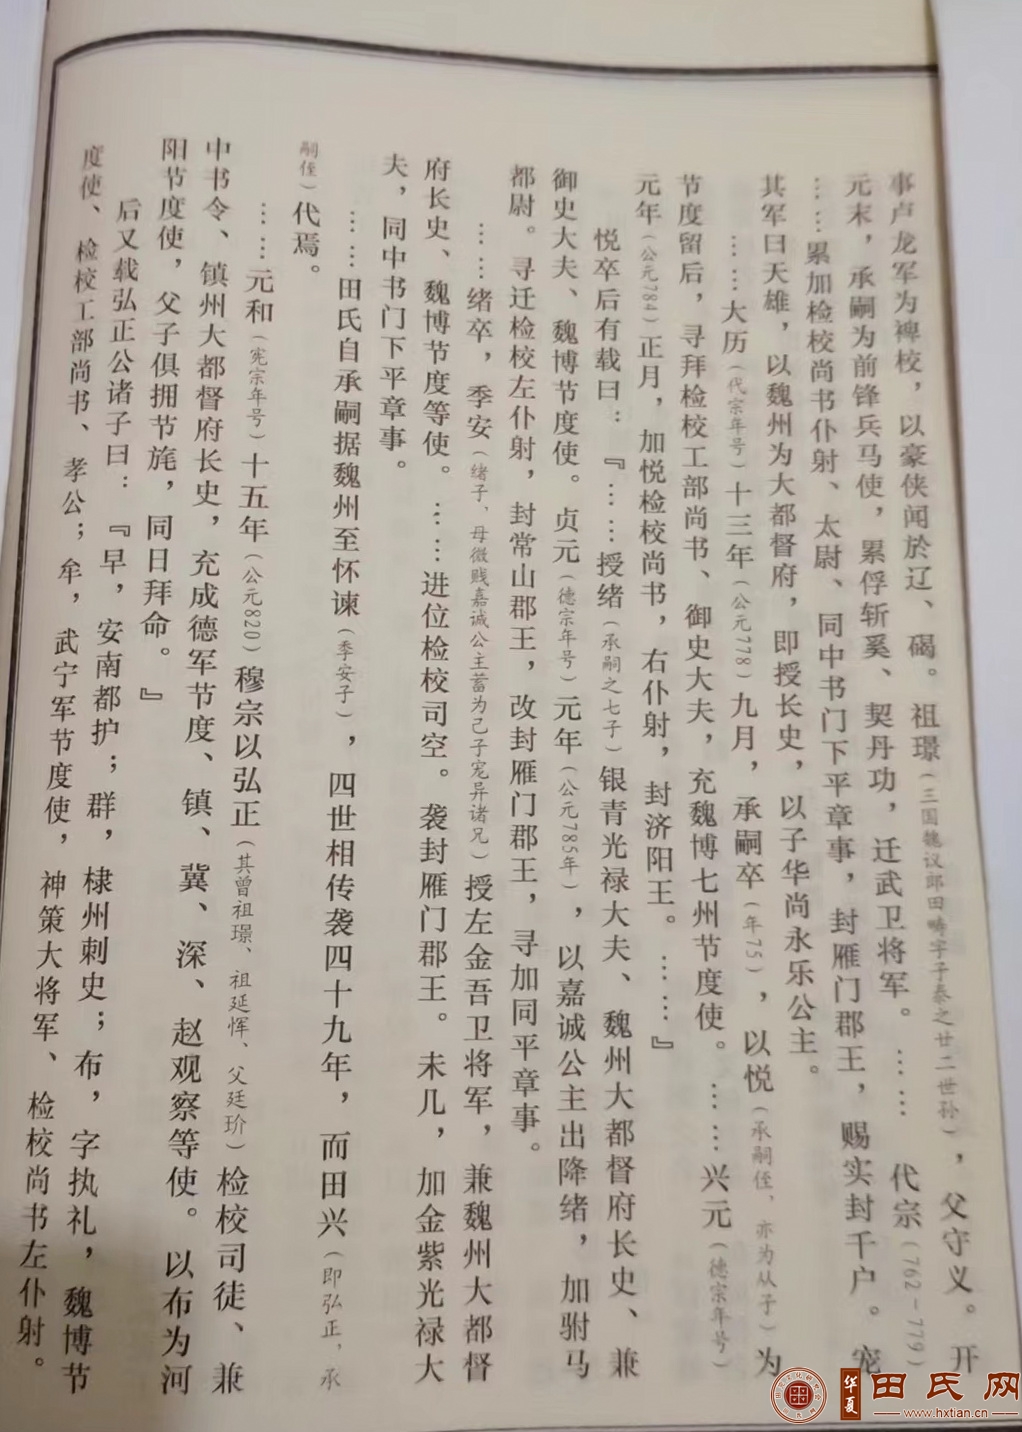 事卢龙军为裨校，以豪侠闻於辽、碣。祖璟（三国魏议郎田畴字子泰之廿二世孙），父守义。开
元末，承嗣为前锋兵马使，累俘斩奚、契丹功，迁武卫将军。……代宗（762－779）
……累加检校尚书仆射、太尉、同中书门下平章事，封雁门郡王，赐实封千户。宠
其军曰天雄，以魏州为大都督府，即授长史，以子华尚永乐公主。
……大历（代宗年号）十三年（公元778）九月，承嗣卒（年75），以悦（承嗣侄，亦为从子）为
节度留后，寻拜检校工部尚书、御史大夫，充魏博七州节度使。……兴元（德宗年号）
元年（公元784）正月，加悦检校尚书，右仆射，封济阳王。……』
悦卒后有载曰：『……授绪（承嗣之七子）银青光禄大夫、魏州大都督府长史、兼
御史大夫、魏博节度使。贞元（德宗年号）元年（公元785年），以嘉诚公主出降绪，加驸马
都尉。寻迁检校左仆射，封常山郡王，改封雁门郡王，寻加同平章事。
……绪卒，季安（绪子，母微贱嘉诚公主蓄为己子宠异诸兄）授左金吾卫将军，兼魏州大都督
府长史、魏博节度等使。……进位检校司空。袭封雁门郡王。未几，加金紫光禄大
夫，同中书门下平章事。
……田氏自承嗣据魏州至怀谏（季安子），四世相传袭四十九年，而田兴（即弘正，承
嗣侄）代焉。
……元和（宪宗年号）十五年（公元820）穆宗以弘正（其曾祖璟、祖延恽、父廷玠）检校司徒、兼
中书令、镇州大都督府长史，充成德军节度、镇、冀、深、赵观察等使。以布为河
阳节度使，父子俱拥节旄，同日拜命。』
后又载弘正公诸子曰：『早，安南都护；群，棣州刺史；布，字执礼，魏博节
度使、检校工部尚书、孝公；牟，武宁军节度使，神策大将军、检校尚书左仆射。
华夏
田氏网
www.hxtian.cn